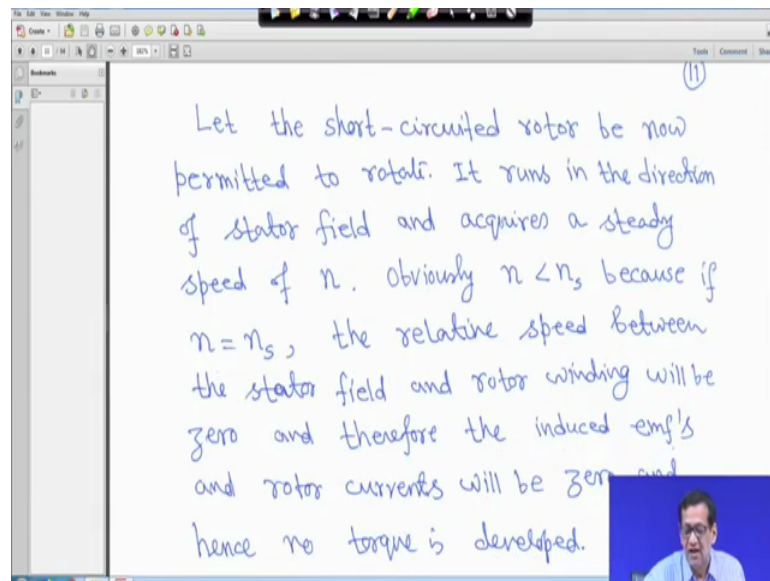 File Edit View Window Help
Create
11 / 14
182%
Tools Comment
Bookmarks
11
Let the short-circuited rotor be now
permitted to rotate. It runs in the direction
of stator field and acquires a steady
speed of n. Obviously n < ns because if
n = ns, the relative speed between
the stator field and rotor winding will be
zero and therefore the induced emf's
and rotor currents will be zero and
hence no torque is developed.